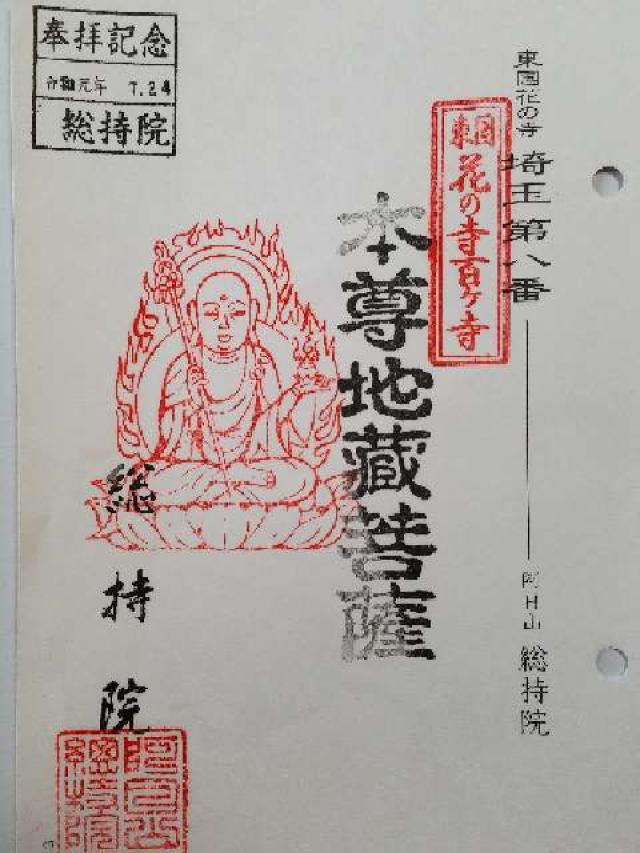 奉拝記念
令和元年 7.24
総持院
東国花の寺 埼玉第八番
阿日山 総持院
東国
花の寺百ヶ寺
本尊地蔵菩薩
総持院